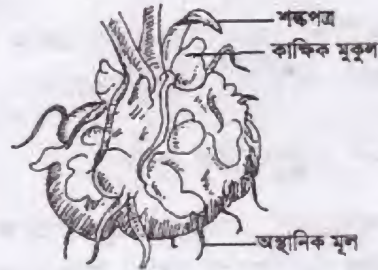 শল্কপত্র
কাক্ষিক মুকুল
অস্থানিক মূল